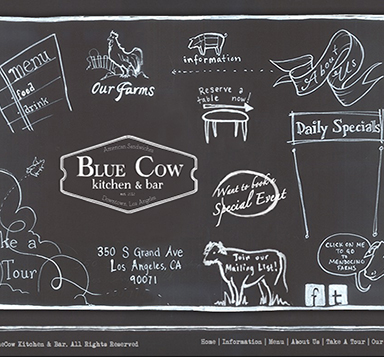 menu
food
drink
Our Farms
information
About
Us
Reserve a
table now!
Daily Specials
American Sandwiches
BLUE COW
kitchen & bar
Downtown, Los Angeles
Want to book a
Special Event
ke a
Tour
350 S Grand Ave
Los Angeles, CA
90071
Join our
Mailing List!
CLICK ON ME
TO GO
TO
MENDOCINO
FARMS
f t
Cow Kitchen & Bar. All Rights Reserved
Home | Information | Menu | About Us | Take A Tour | Our